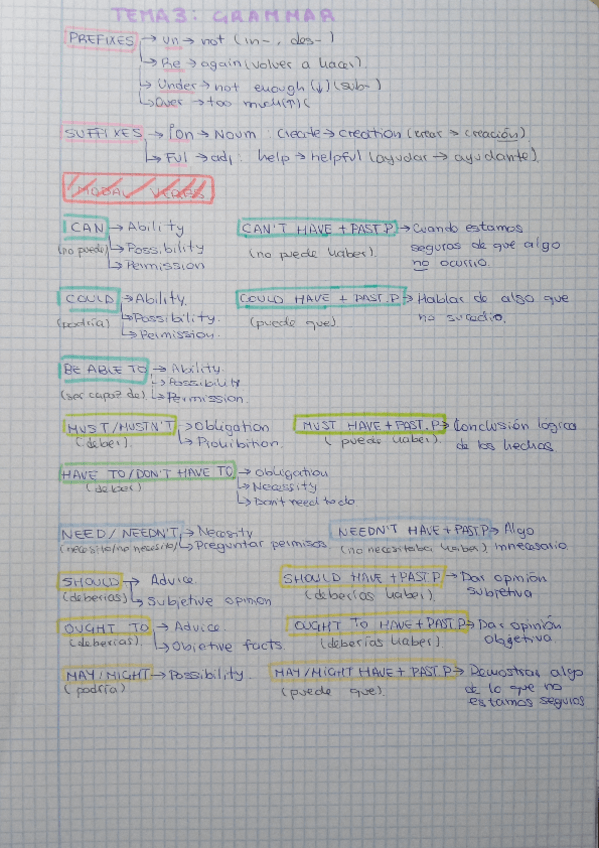 TEMA 3: GRAMMAR
PREFIXES → un → not (in-, des-)
↳ Re → again (volver a hacer).
↳ Under → not enough (↓) (sub-)
↳ Over → too much (↑) (
SUFFIXES → Ion → Noum: create → creation (crear → creación)
↳ Ful → adj: help → helpful (ayudar → ayudante)
MODAL VERBS
CAN → Ability
(no puede) ↳ Possibility
↳ Permission
CAN'T HAVE + PAST.P → Cuando estamos
(no puede haber) seguras de que algo
no ocurrio.
COULD → Ability.
(podría) ↳ Possibility.
↳ Permission.
COULD HAVE + PAST.P → Hablar de algo que
(puede que) no sucedio.
BE ABLE TO → Ability.
↳ Possibility
(ser capaz de) ↳ Permission.
MUST/MUSTN'T → Obligation
(deber) ↳ Prohibition.
MUST HAVE + PAST.P → Conclusión lógica
(puede haber). de los hechos.
HAVE TO/DON'T HAVE TO → Obligation
(deber) ↳ Necessity
↳ Don't need to do
NEED/NEEDN'T → Necesity
(necesito/no necesito) ↳ Preguntar permisos
NEEDN'T HAVE + PAST.P → Algo
(no necesitaba haber) innecesario
SHOULD → Advice.
(deberías) ↳ Subjetive opinion
SHOULD HAVE + PAST.P → Dar opinión
(deberías haber) subjetiva
OUGHT TO → Advice.
(deberías) ↳ Objetive facts.
OUGHT TO HAVE + PAST.P → Dar opinión
(deberías haber) objetiva.
MAY/MIGHT → Possibility.
(podría)
MAY/MIGHT HAVE + PAST.P → Demostrar algo
(puede que). de lo que no
estamos seguros